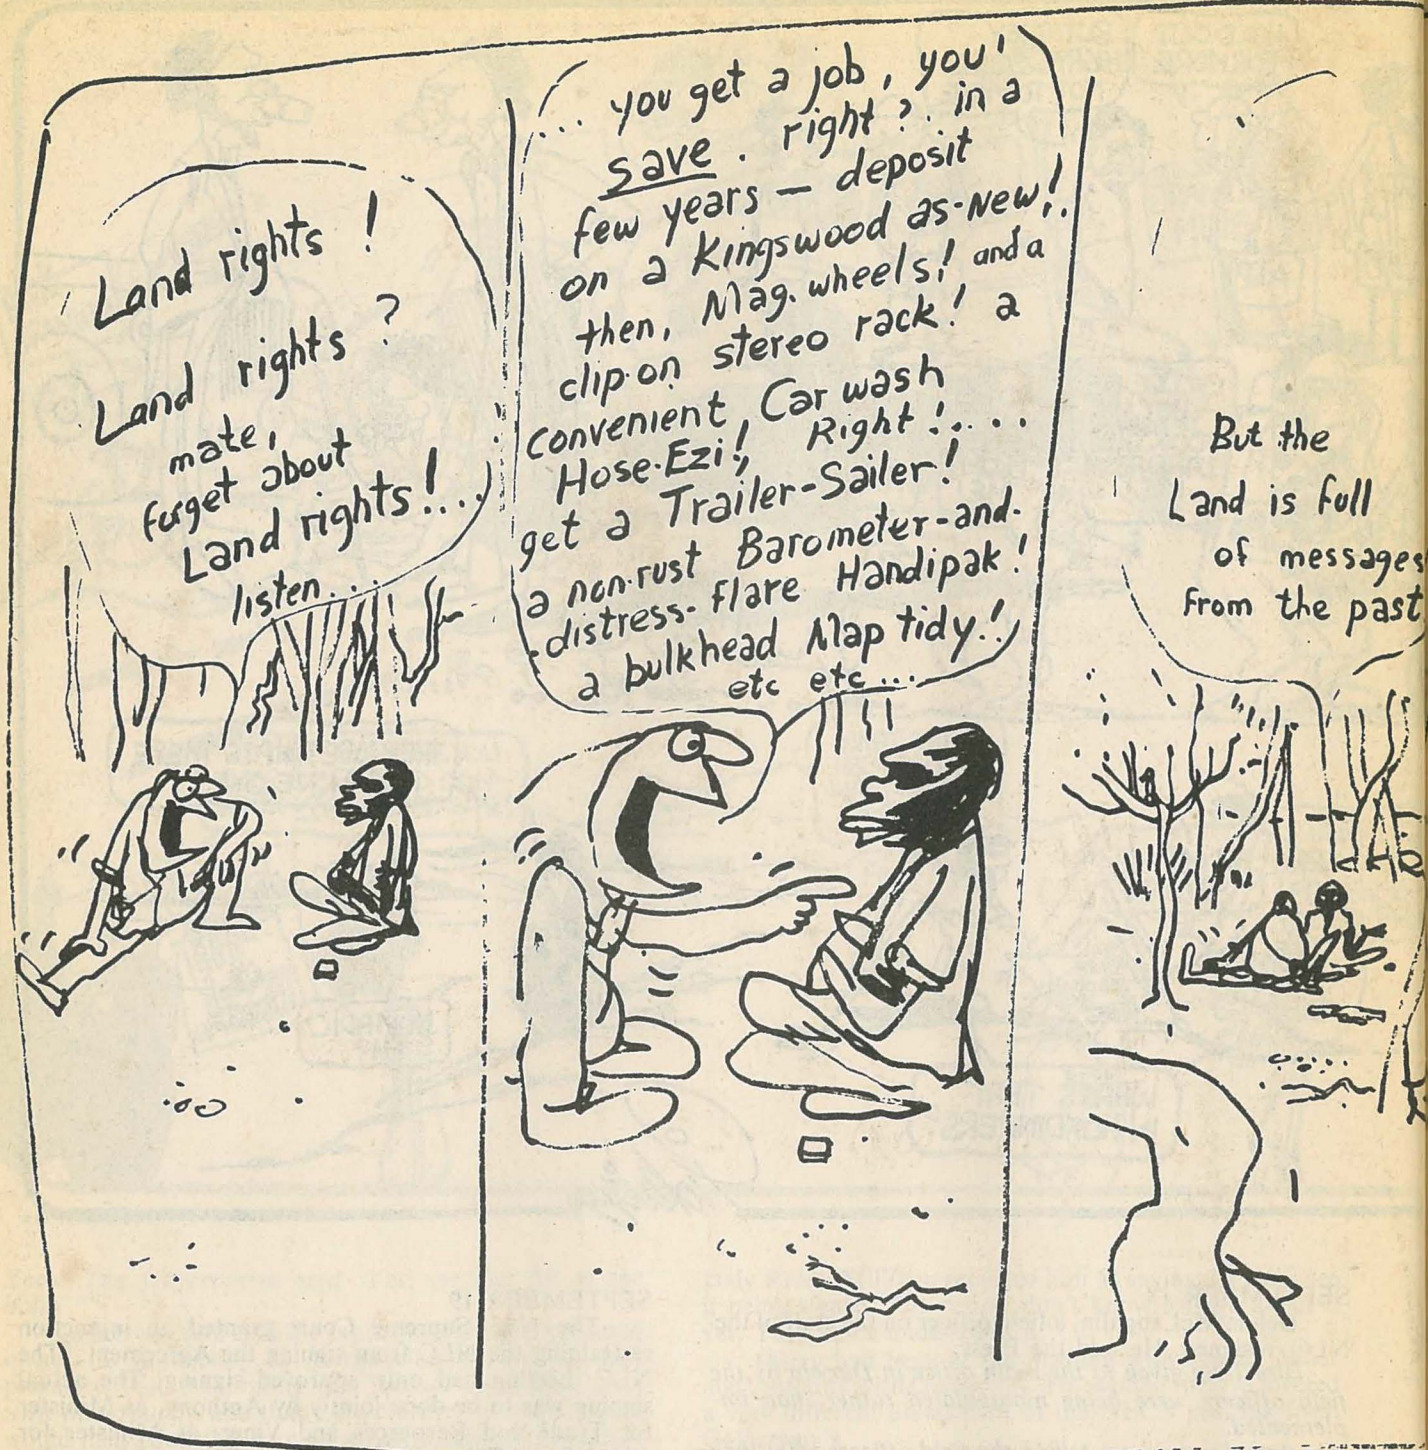 Land rights !
Land rights ?
mate,
forget about
Land rights!...
listen...
... you get a job, you
save. right?. in a
few years — deposit
on a Kingswood as-New!.
then, Mag. wheels! and a
clip-on stereo rack! a
convenient Car wash
Hose-Ezi!, Right!....
get a Trailer-Sailer!
a non-rust Barometer-and-
distress-flare Handipak!
a bulkhead Map tidy.!
etc etc...
But the
Land is full
of messages
from the past